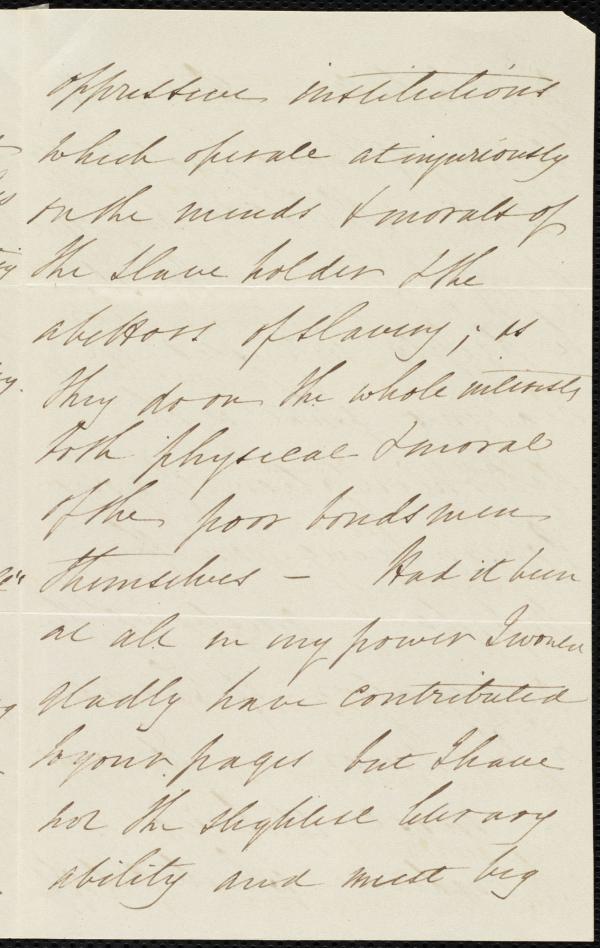 oppressive institutions
which operate as injuriously
on the minds & morals of
the slave holder & the
abettors of slavery; as
they do on the whole interests
both physical & moral
of the poor bondsmen
themselves — Had it been
at all in my power I would
gladly have contributed
to your pages but I have
not the slightest literary
ability and must beg